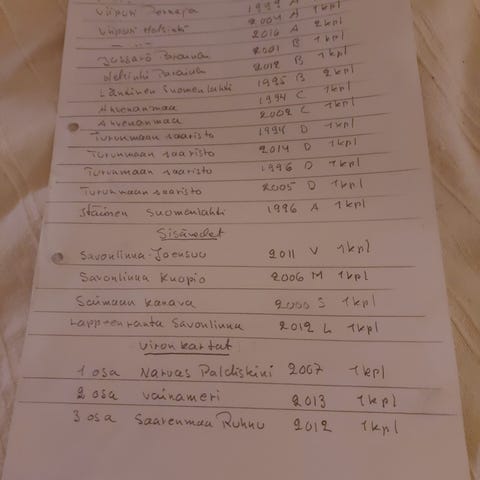 Viipuri Pernaja 1999 A 1kpl
Viipuri Helsinki 2004 A 1kpl
2016 A 2kpl
Jussarö Parainen 2001 B 1kpl
Helsinki Parainen 2012 B 1kpl
Läntinen Suomenlahti 1995 B 2kpl
Ahvenanmaa 1994 C 1kpl
Ahvenanmaa 2002 C 1kpl
Turunmaan saaristo 1994 D 1kpl
Turunmaan saaristo 2014 D 1kpl
Turunmaan saaristo 1996 D 1kpl
Turunmaan saaristo 2005 D 1kpl
Itäinen Suomenlahti 1996 A 1kpl
Sisävedet
Savonlinna-Joensuu 2011 V 1kpl
Savonlinna Kuopio 2006 M 1kpl
Saimaan kanava 2000 S 1kpl
Lappeenranta Savonlinna 2012 L 1kpl
Vironkartat
1 osa Narvas Paldiskini 2007 1kpl
2 osa vainameri 2013 1kpl
3 osa Saarenmaa Ruhnu 2012 1kpl